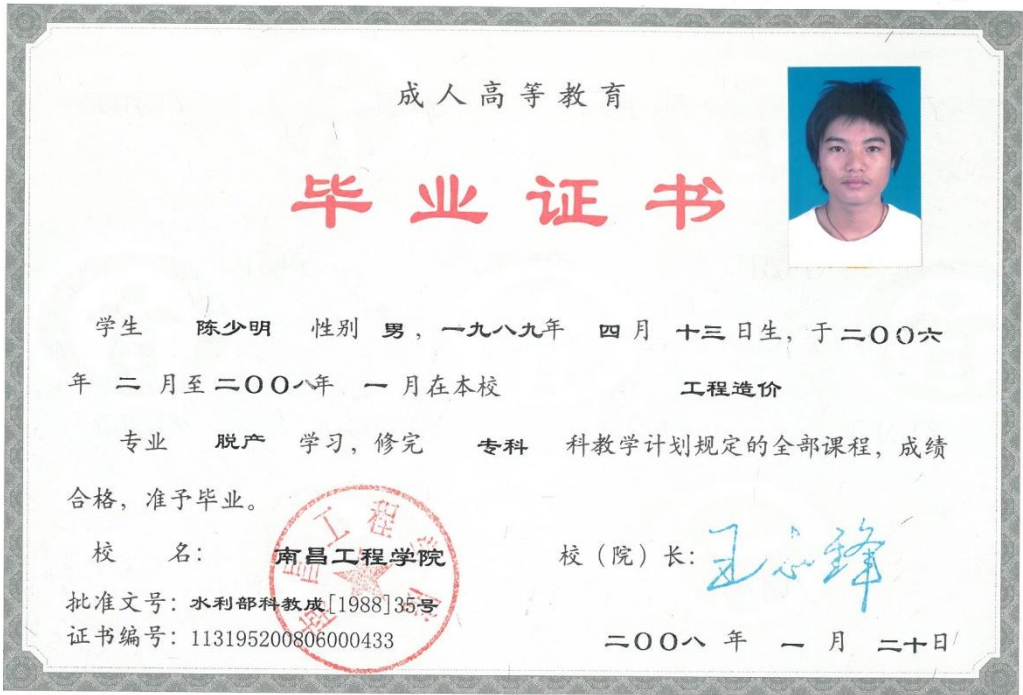 成人高等教育
毕业证书
学生 陈少明 性别 男，一九八九年 四月 十三日生，于二〇〇六
年 二 月至二〇〇八年 一 月在本校 工程造价
专业 脱产 学习，修完 专科 科教学计划规定的全部课程，成绩
合格，准予毕业。
校 名： 南昌工程学院 校（院）长：
批准文号：水利部科教成[1988]35号
证书编号：113195200806000433 二〇〇八 年 一 月 二十日